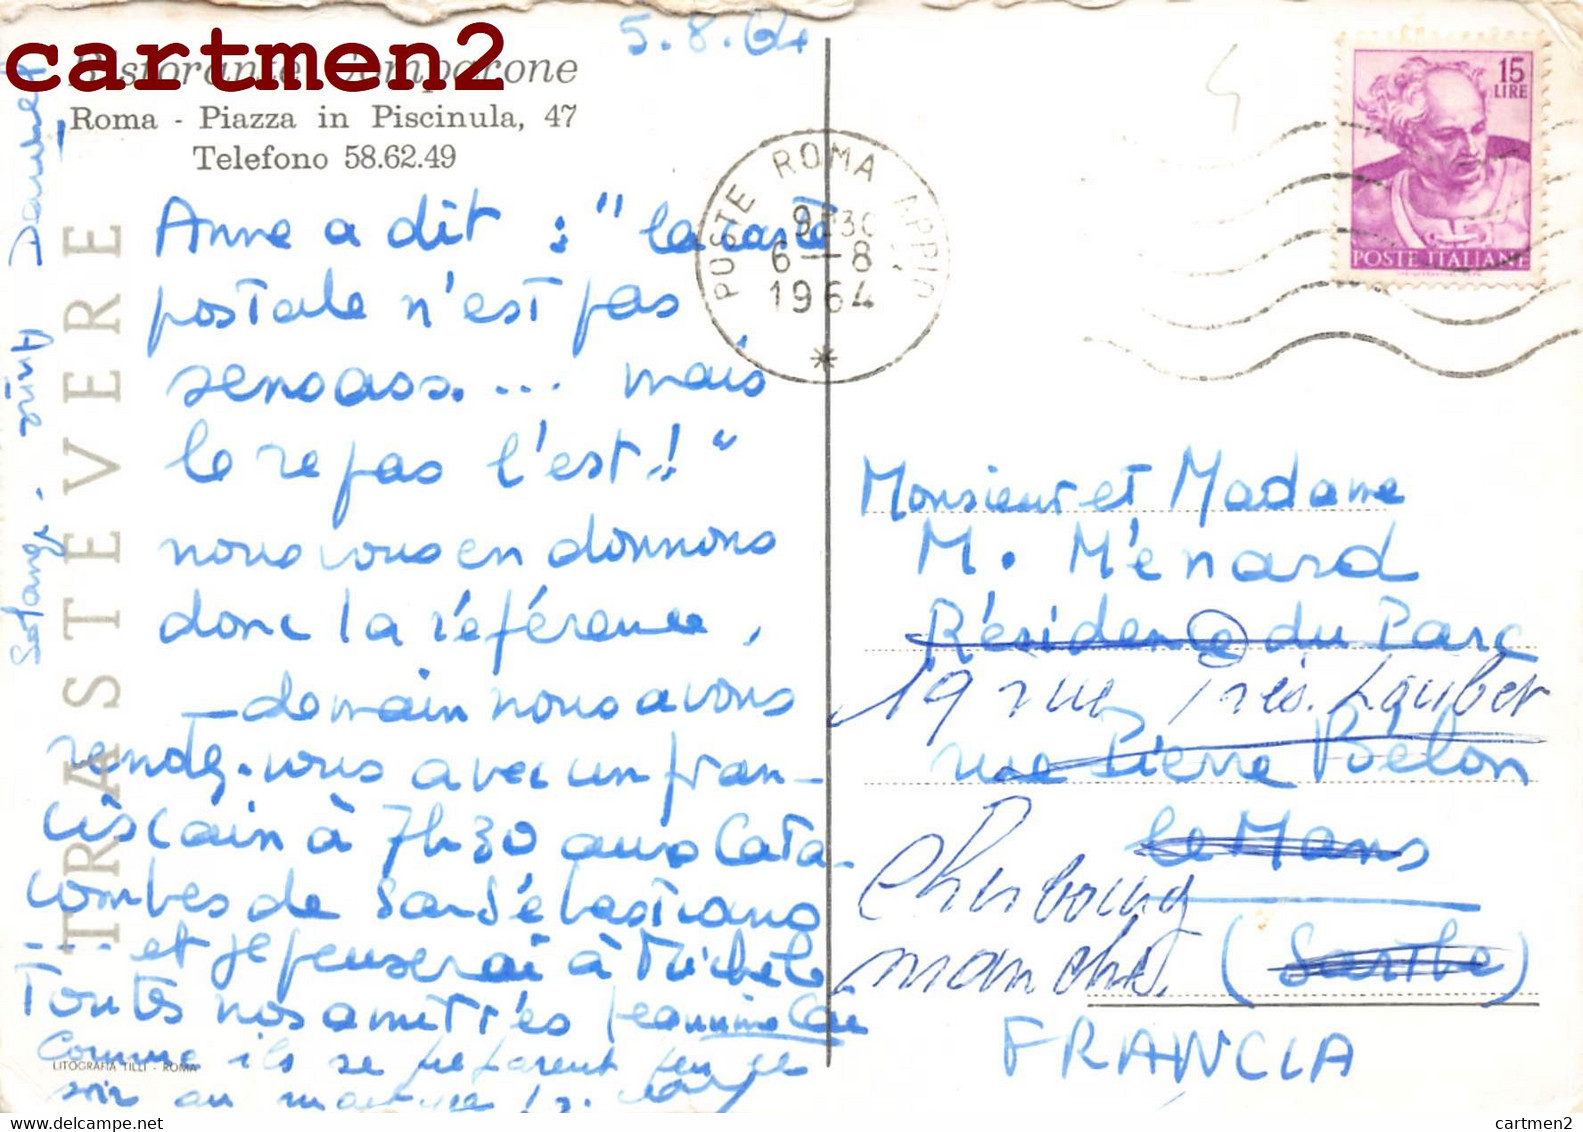 cartmen2
5.8.64
Ristorante Comparone
Roma - Piazza in Piscinula, 47
Telefono 58.62.49
TRASTEVERE
Anne a dit : "la carte
postale n'est pas
sensass.... mais
le repas l'est !"
nous vous en donnons
donc la référence,
- demain nous avons
rendez-vous avec un fran-
ciscain à 7h30 aux Cata-
combes de San Sébastiano
... et je penserai à Michèle
Toutes nos amitiés Jeannine
Comme ils se préparent peu ce
soir au
Solange
LITOGRAFIA TILLI - ROMA
POSTE ROMA APPIO
9 30
6-8
1964
15
LIRE
POSTE ITALIANE
Monsieur et Madame
M. Ménard
Résidence du Parc
19 rue Prés. Loubet
rue Pierre Belon
le Mans
Cherbourg
(Sarthe)
manche.
FRANCIA
cartmen2